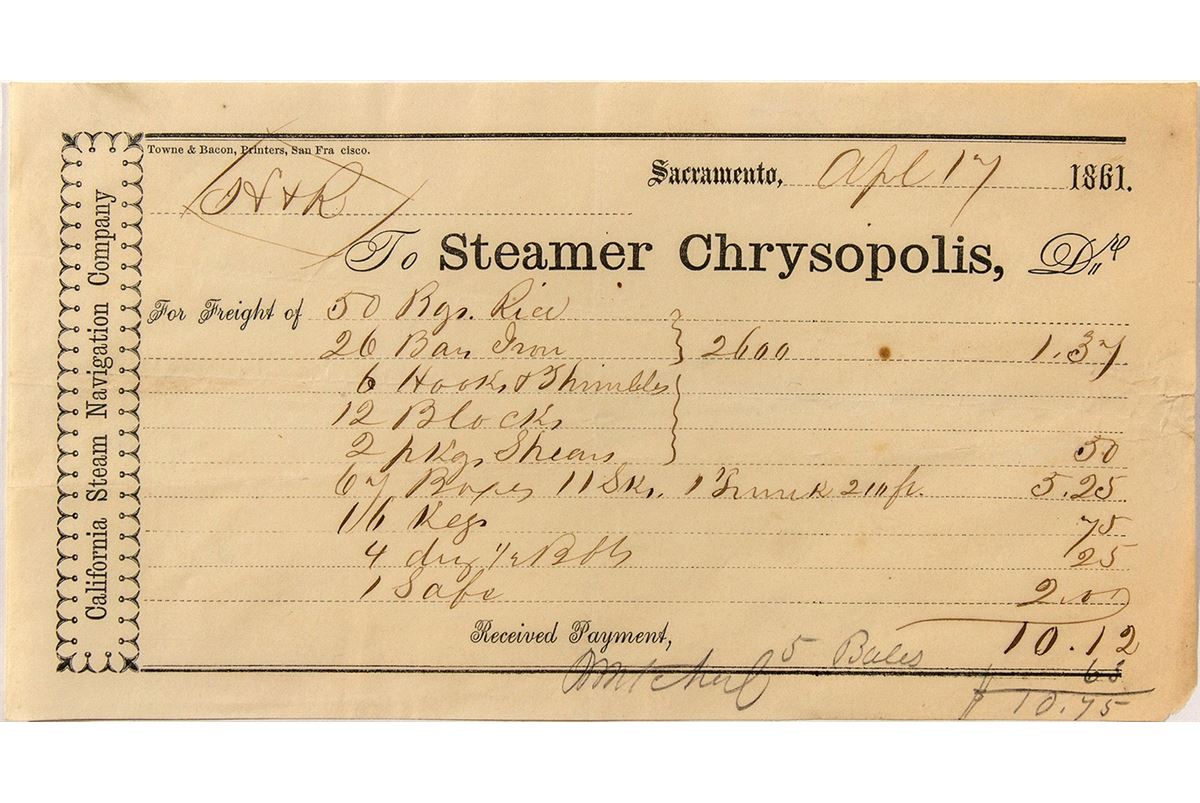 California Steam Navigation Company
Towne & Bacon, Printers, San Fra cisco.
Sacramento, Apl 17 1861.
H & K
To Steamer Chrysopolis, Dr
For Freight of 50 Bgs. Rice
26 Bars Iron } 2600 1.37
6 Hooks & Thimbles
12 Blocks
2 pkgs Shears } 50
67 Boxes 11 Sks. 1 Trunk 5.25
16 Kegs 75
4 Bbls 25
1 Safe 2.00
Received Payment, 10.12
5 Bales 63
$ 10.75